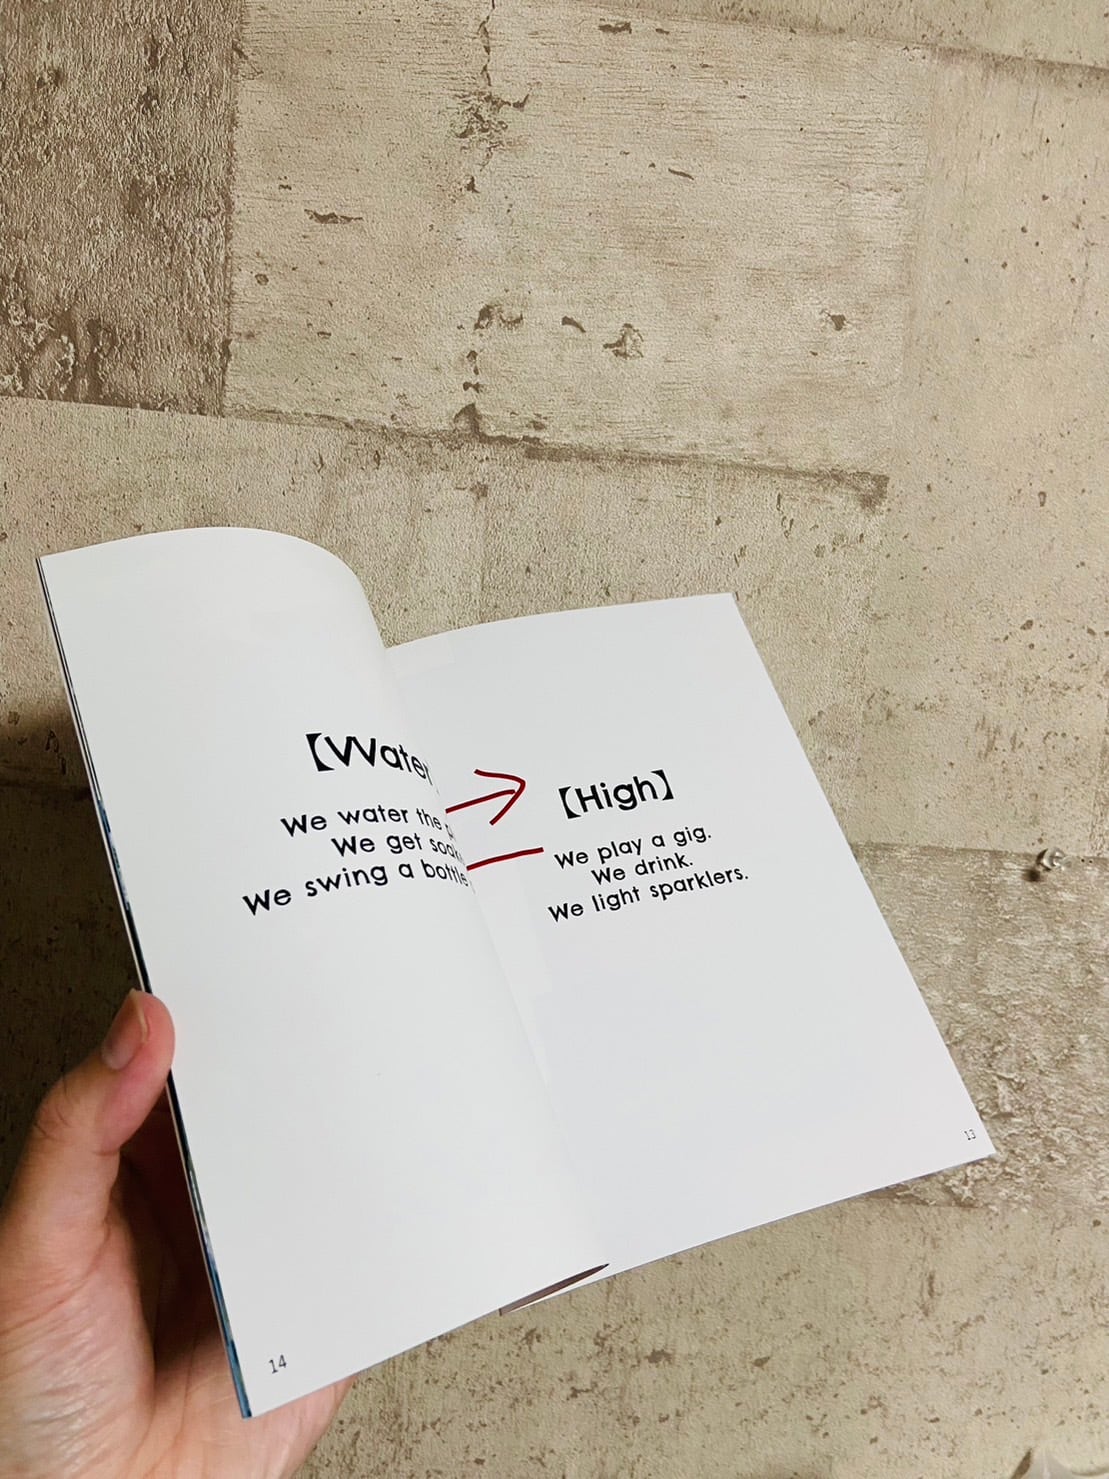 【Water
We water the
We get
We swing a bottle
14
【High】
We play a gig.
We drink.
We light sparklers.
13